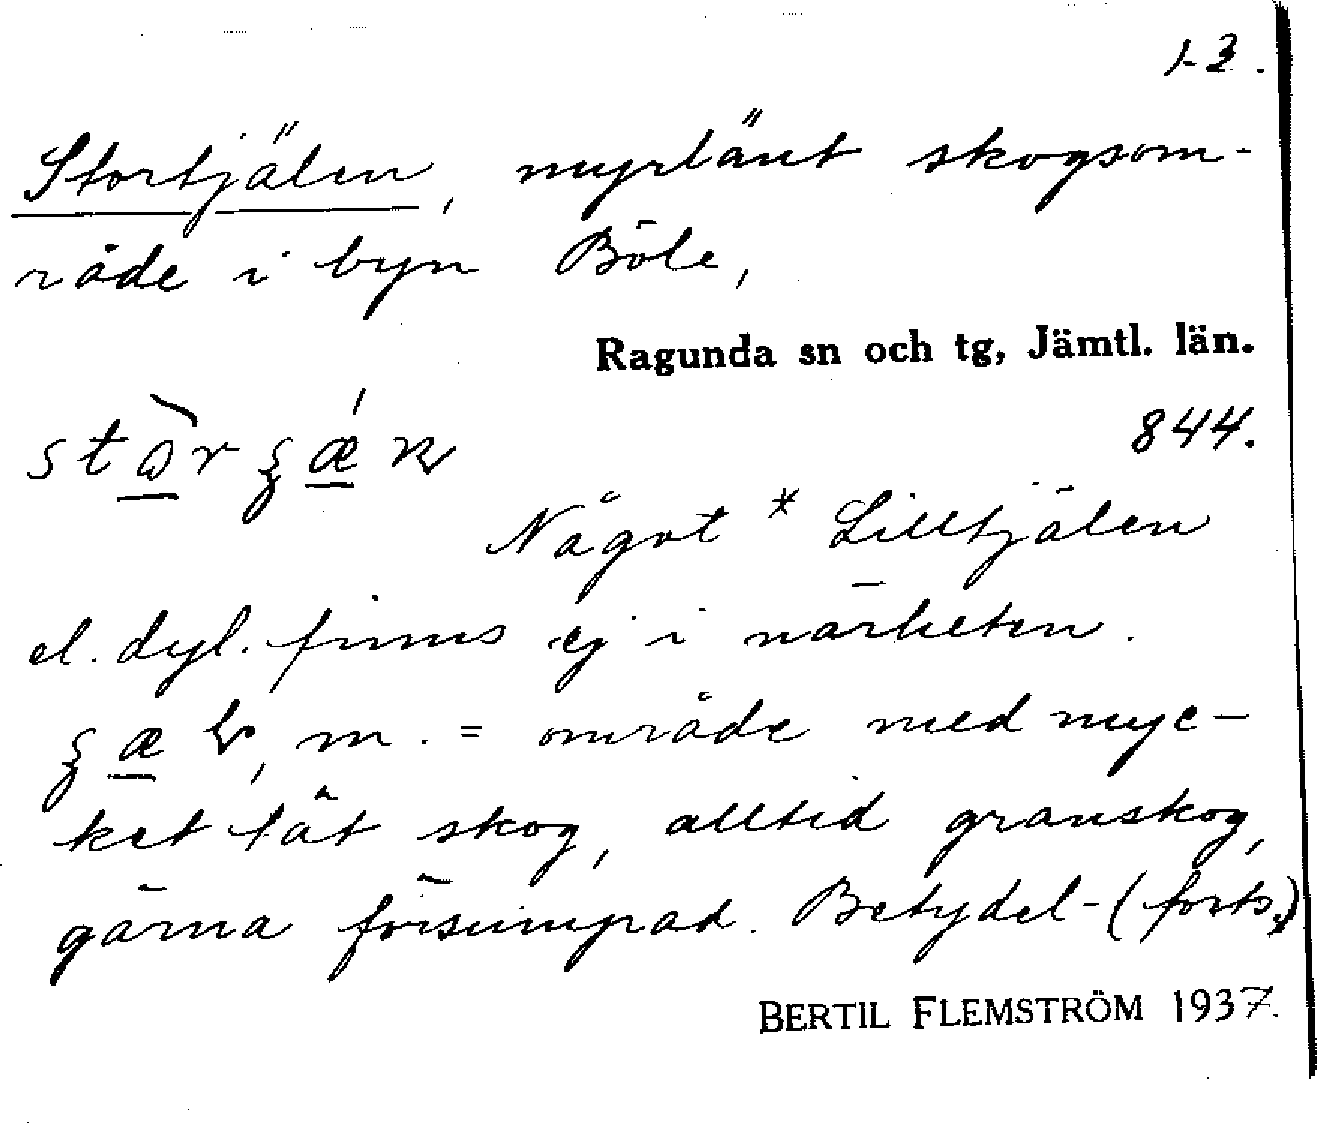 1-3.
Stortjälen, myrlänt skogsom-
råde i byn Böle,
Ragunda sn och tg, Jämtl. län.
844.
Något * Lilltjälen
el. dyl. finns ej i närheten.
m. = område med myc-
ket tät skog, alltid granskog,
gärna försumpad. Betydel- (forts.)
BERTIL FLEMSTRÖM 1937.